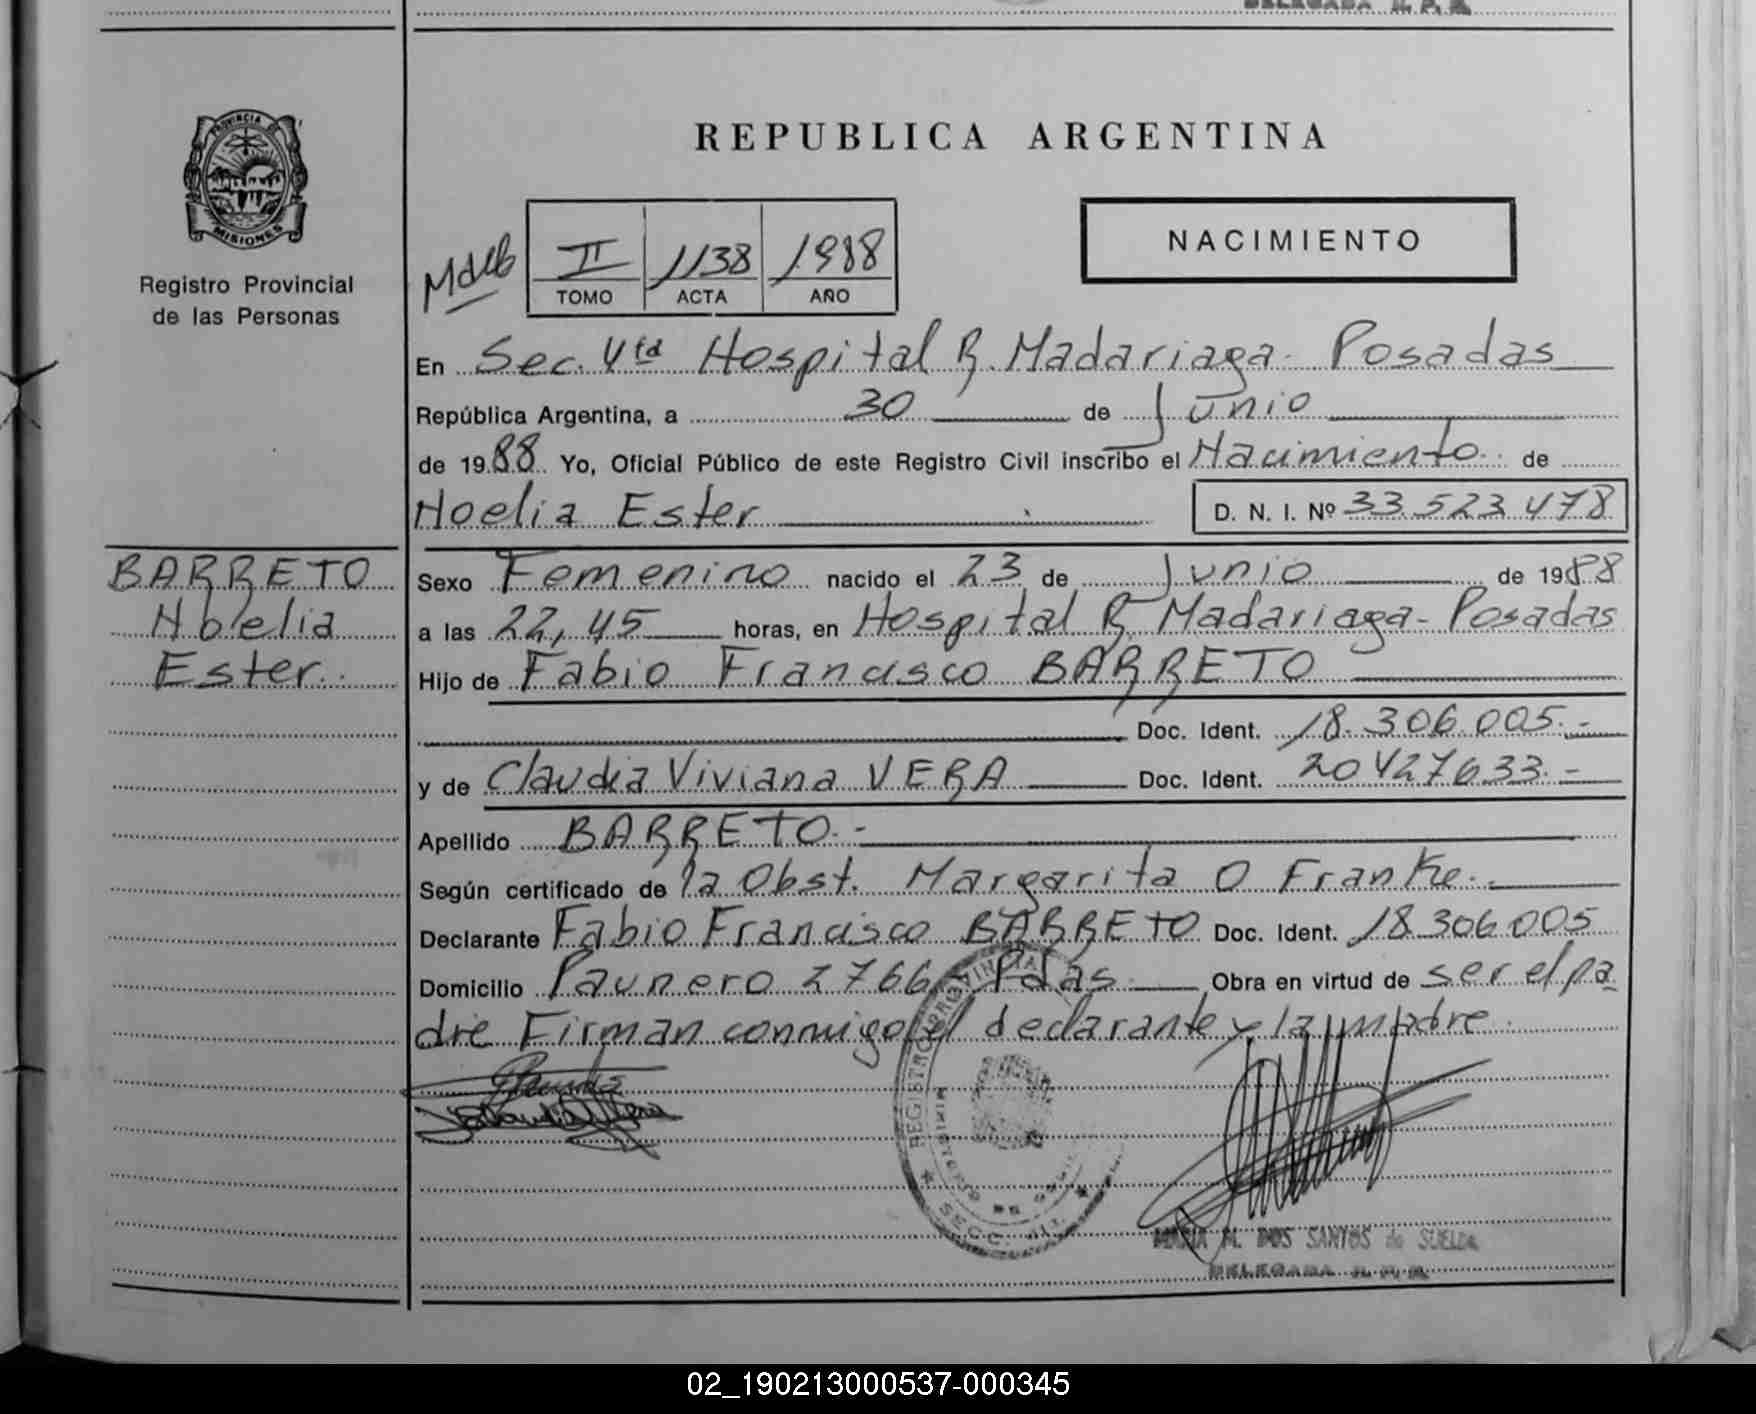 DELEGADA R. P. P.
PROVINCIA DE
MISIONES
Registro Provincial
de las Personas
REPUBLICA ARGENTINA
II 1138 1988
TOMO ACTA AÑO
NACIMIENTO
En Sec. 4ta Hospital R. Madariaga - Posadas
República Argentina, a 30 de Junio
de 1988 Yo, Oficial Público de este Registro Civil inscribo el Nacimiento de
Noelia Ester D. N. I. Nº 33.523.478
BARRETO
Noelia
Ester
Sexo Femenino nacido el 23 de Junio de 1988
a las 22,45 horas, en Hospital R. Madariaga - Posadas
Hijo de Fabio Francisco BARRETO
Doc. Ident. 18.306.005.-
y de Claudia Viviana VERA Doc. Ident. 20427633.-
Apellido BARRETO.-
Según certificado de la Obst. Margarita O Franke.
Declarante Fabio Francisco BARRETO Doc. Ident. 18.306.005
Domicilio Paunero 2766 Pdas Obra en virtud de ser el pa
dre Firman conmigo el declarante y la madre.
REGISTRO PROVINCIAL
SECC.
MARIA M. DOS SANTOS de SUELDA
DELEGADA R. P. P.
02_190213000537-000345